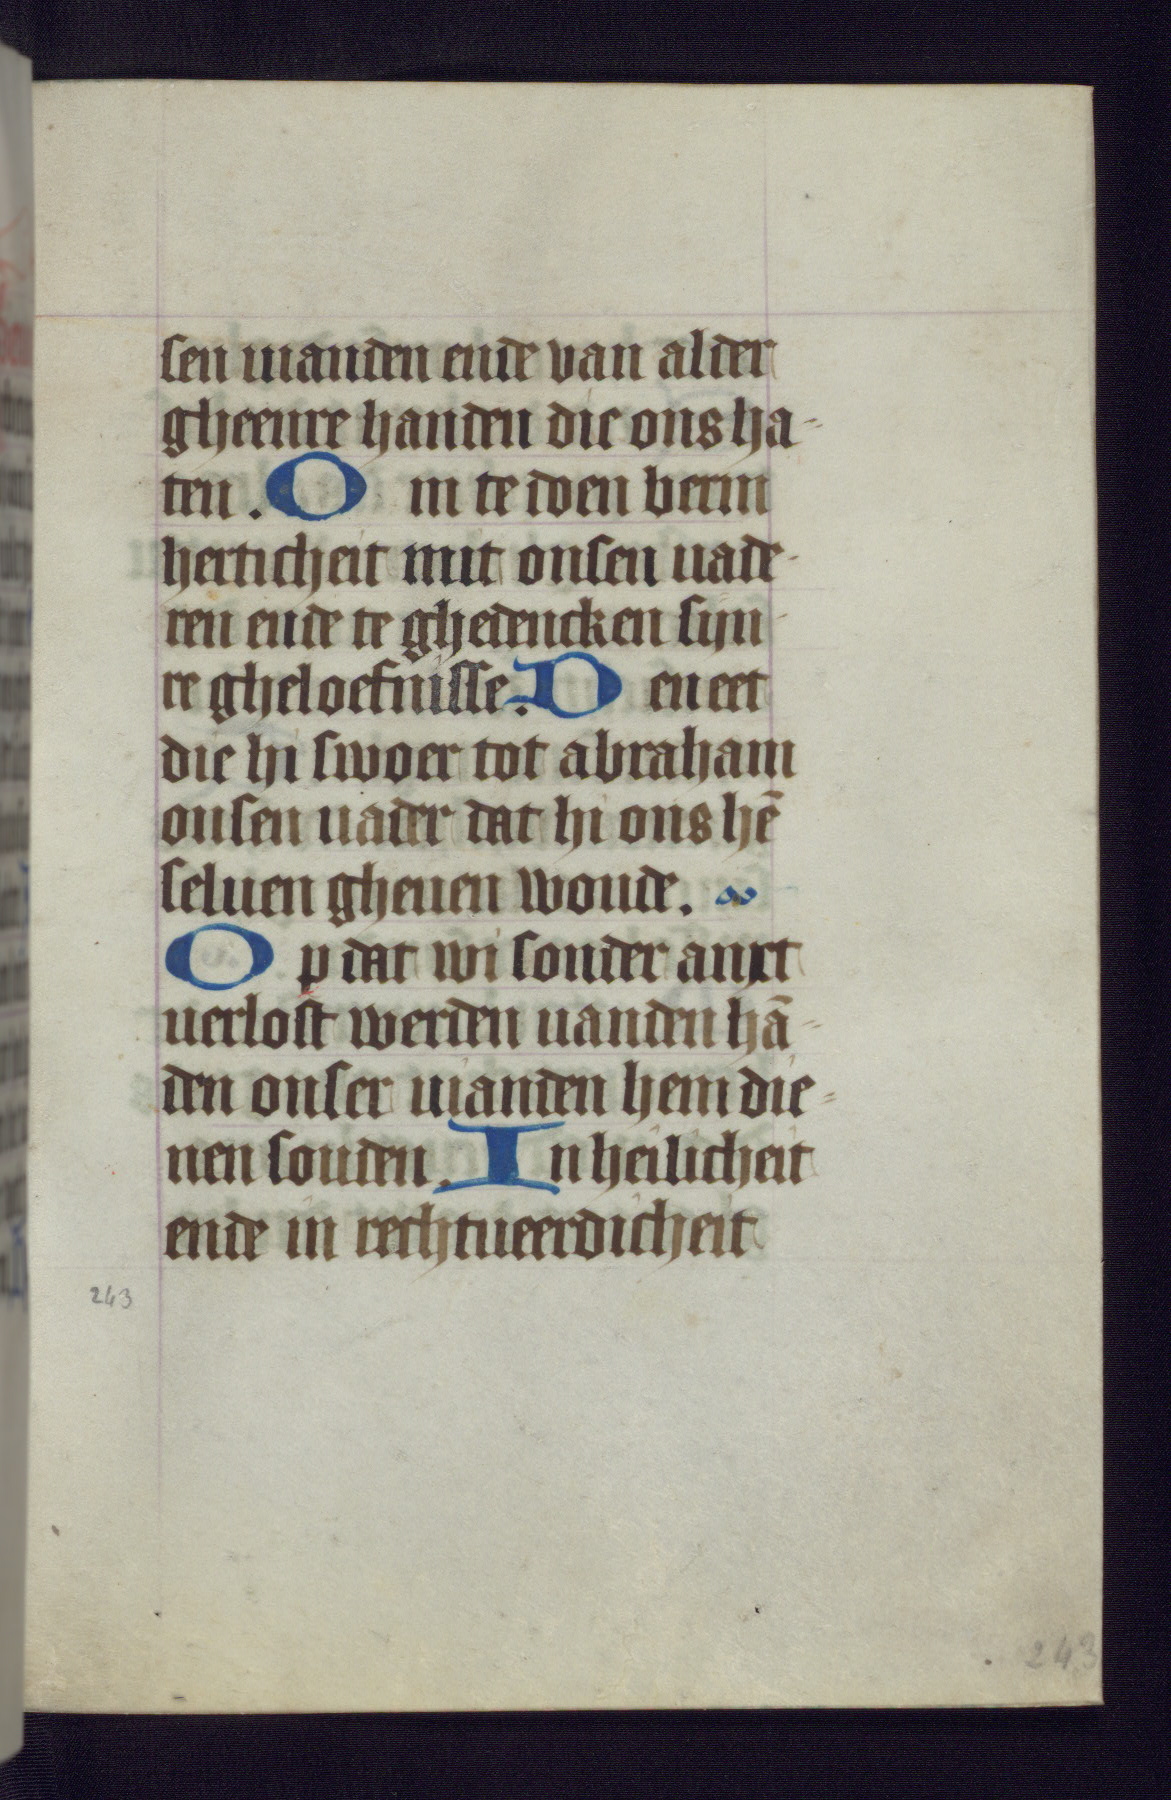 sen uianden ende van alder
gheenre handen die ons ha-
ten. Om te doen berm
herticheit mit onsen uade-
ren ende te ghedencken sijn-
re gheloefnisse. Den eet
die hi swoer tot abraham
onsen uader dat hi ons hē
seluen gheuen woude.
Op dat wi sonder anxt
uerlost werden uanden hā-
den onser uianden hem die-
nen souden. In heilicheit
ende in rechtueerdicheit
243
243